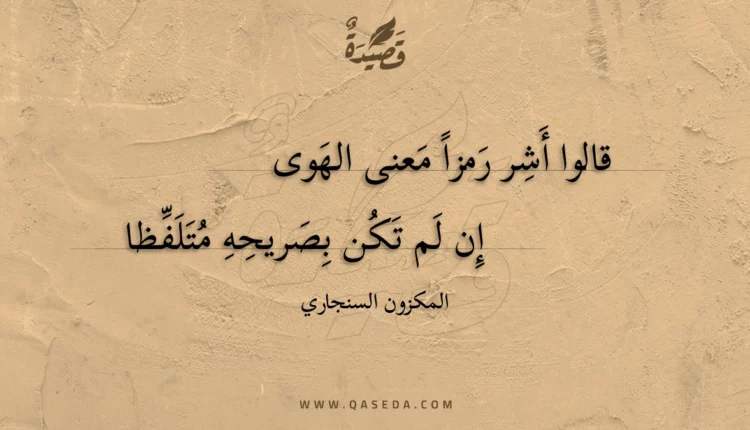 قَصِيدَةٌ
قالوا أَشِر رَمزاً مَعنى الهَوى
إِن لَم تَكُن بِصَريحِهِ مُتَلَفِّظا
المكزون السنجاري
WWW.QASEDA.COM